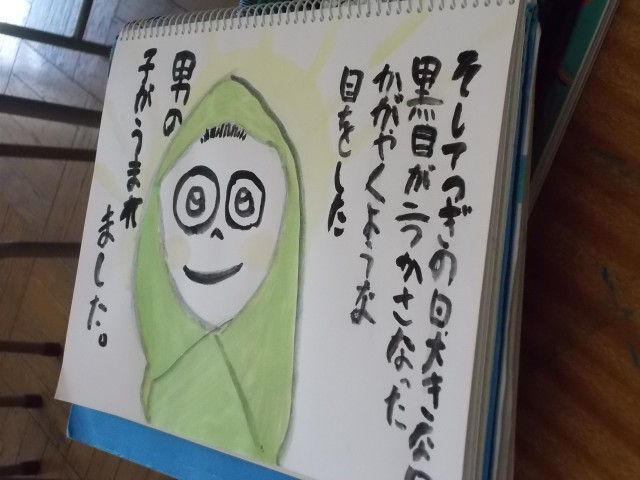 そしてつぎの日大きな
黒目が二つかさなった
かがやくような
目をした
男の
子がうまれ
ました。